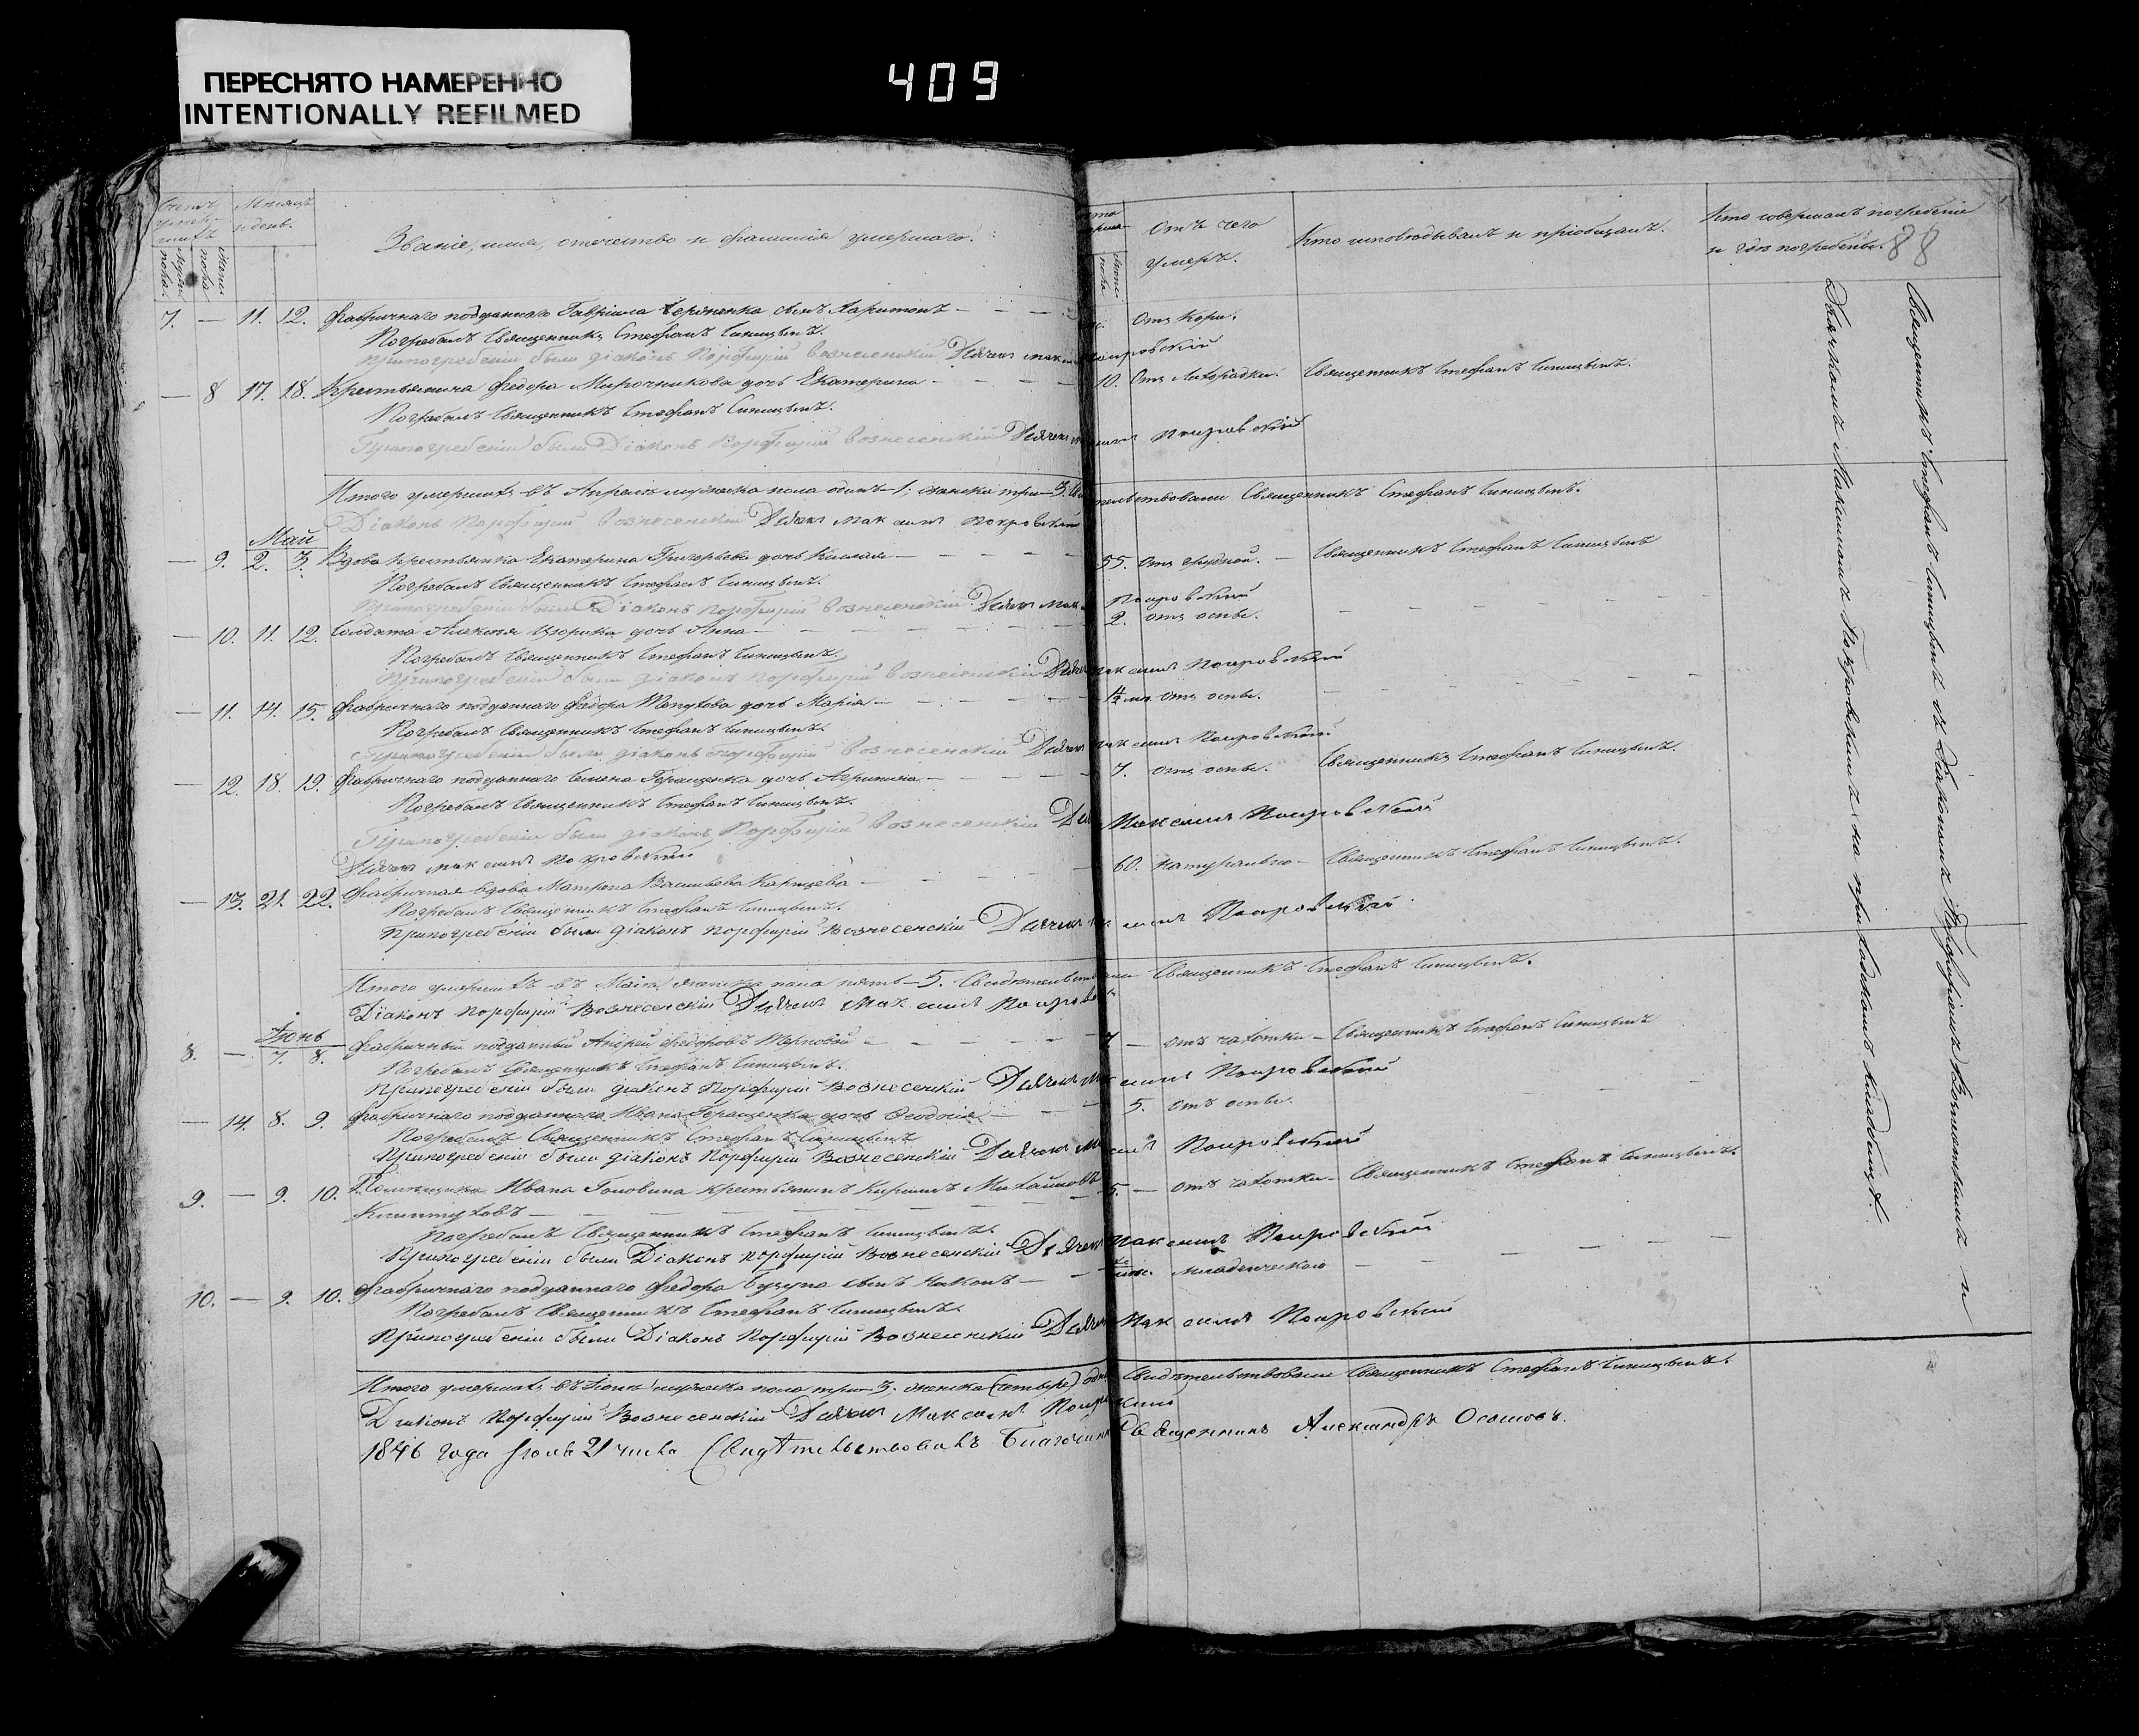 ПЕРЕСНЯТО НАМЕРЕННО
INTENTIONALLY REFILMED
409
88
Счетъ умершихъ
Мужеска пола.
Женска пола
Мѣсяцъ и день.
Званіе, имя, отечество и фамилія умершаго.
Отъ чего умеръ.
Кто исповѣдывалъ и пріобщалъ.
Кто совершалъ погребеніе и гдѣ погребены.
7. — 11. 12. Фабричнаго подданнаго Гавріила сынъ Харитонъ — Отъ кори.
Погребалъ Священникъ Стефанъ Синицынъ.
При погребеніи были Діаконъ Порфирій Вознесенскій Дьячекъ Максимъ Покровскій
— 8 17. 18. Крестьянина Федора Мирочникова дочь Екатерина — 10. Отъ лихорадки. Священникъ Стефанъ Синицынъ.
Погребалъ Священникъ Стефанъ Синицынъ.
При погребеніи были Діаконъ Порфирій Вознесенскій Дьячекъ Покровскій
Итого умершихъ въ Апрѣлѣ мужеска пола одинъ — 1; женска три — 3. Священникъ Стефанъ Синицынъ.
Діаконъ Порфирій Вознесенскій Дьячекъ Максимъ Покровскій
Май
— 9. 2. 3. Вдова крестьянка Екатерина Григорьева дочь — 55. Отъ — Священникъ Стефанъ Синицынъ
Погребалъ Священникъ Стефанъ Синицынъ.
При погребеніи были Діаконъ Порфирій Вознесенскій Дьячекъ Покровскій
— 10. 11. 12. Солдата Алексѣя дочь Анна — 2. отъ оспы.
Погребалъ Священникъ Стефанъ Синицынъ.
При погребеніи были Діаконъ Порфирій Вознесенскій Дьячекъ Максимъ Покровскій
— 11. 14. 15. Фабричнаго подданнаго Федора дочь Марія — отъ оспы.
Погребалъ Священникъ Стефанъ Синицынъ.
При погребеніи были Діаконъ Порфирій Вознесенскій Дьячекъ Максимъ Покровскій
— 12. 18. 19. Фабричнаго подданнаго Семена Геращенка дочь Агрипина — 7. отъ оспы. Священникъ Стефанъ Синицынъ.
Погребалъ Священникъ Стефанъ Синицынъ.
При погребеніи были Діаконъ Порфирій Вознесенскій Максимъ Покровскій
Дьячекъ Максимъ Покровскій
— 13. 21. 22. Фабричная вдова Матрона Васильева Карпцева — 60. натурально — Священникъ Стефанъ Синицынъ.
Погребалъ Священникъ Стефанъ Синицынъ.
При погребеніи были Діаконъ Порфирій Вознесенскій Дьячекъ Покровскій
Итого умершихъ въ Маіѣ женска пола пять — 5. Свидѣтельствовали Священникъ Стефанъ Синицынъ.
Діаконъ Порфирій Вознесенскій Дьячекъ Максимъ
Іюнь
8. — 7. 8. Фабричный подданный Андрей Федоровъ Терновой — отъ чахотки — Священникъ Стефанъ Синицынъ
Погребалъ Священникъ Стефанъ Синицынъ.
При погребеніи были Діаконъ Порфирій Вознесенскій Дьячекъ Покровскій
— 14. 8. 9. Фабричнаго подданнаго Ивана Геращенка дочь Ѳеодосія — 5. отъ оспы.
Погребалъ Священникъ Стефанъ Синицынъ
При погребеніи были Діаконъ Порфирій Вознесенскій Дьячекъ Покровскій
9. — 9. 10. Помѣщика Ивана Головина крестьянинъ Кирилъ Михайловъ — отъ чахотки — Священникъ Стефанъ Синицынъ.
Погребалъ Священникъ Стефанъ Синицынъ.
При погребеніи были Діаконъ Порфирій Вознесенскій Дьячекъ Максимъ Покровскій
10. — 9. 10. Фабричнаго подданнаго Федора сынъ Никонъ — младенческой
Погребалъ Священникъ Стефанъ Синицынъ.
При погребеніи были Діаконъ Порфирій Вознесенскій Дьячекъ Максимъ Покровскій
Итого умершихъ въ Іюнѣ мужеска пола три — 3. женска (четыре) Свидѣтельствовали Священникъ Стефанъ Синицынъ.
Діаконъ Порфирій Вознесенскій Дьячекъ Максимъ
1846 года Іюля 21 числа Свидѣтельствовалъ Священникъ Александръ
Священникъ Стефанъ Синицынъ съ Діакономъ Порфиріемъ Вознесенскимъ и
Дьячкомъ Максимомъ Покровскимъ на приходскомъ кладбищѣ.